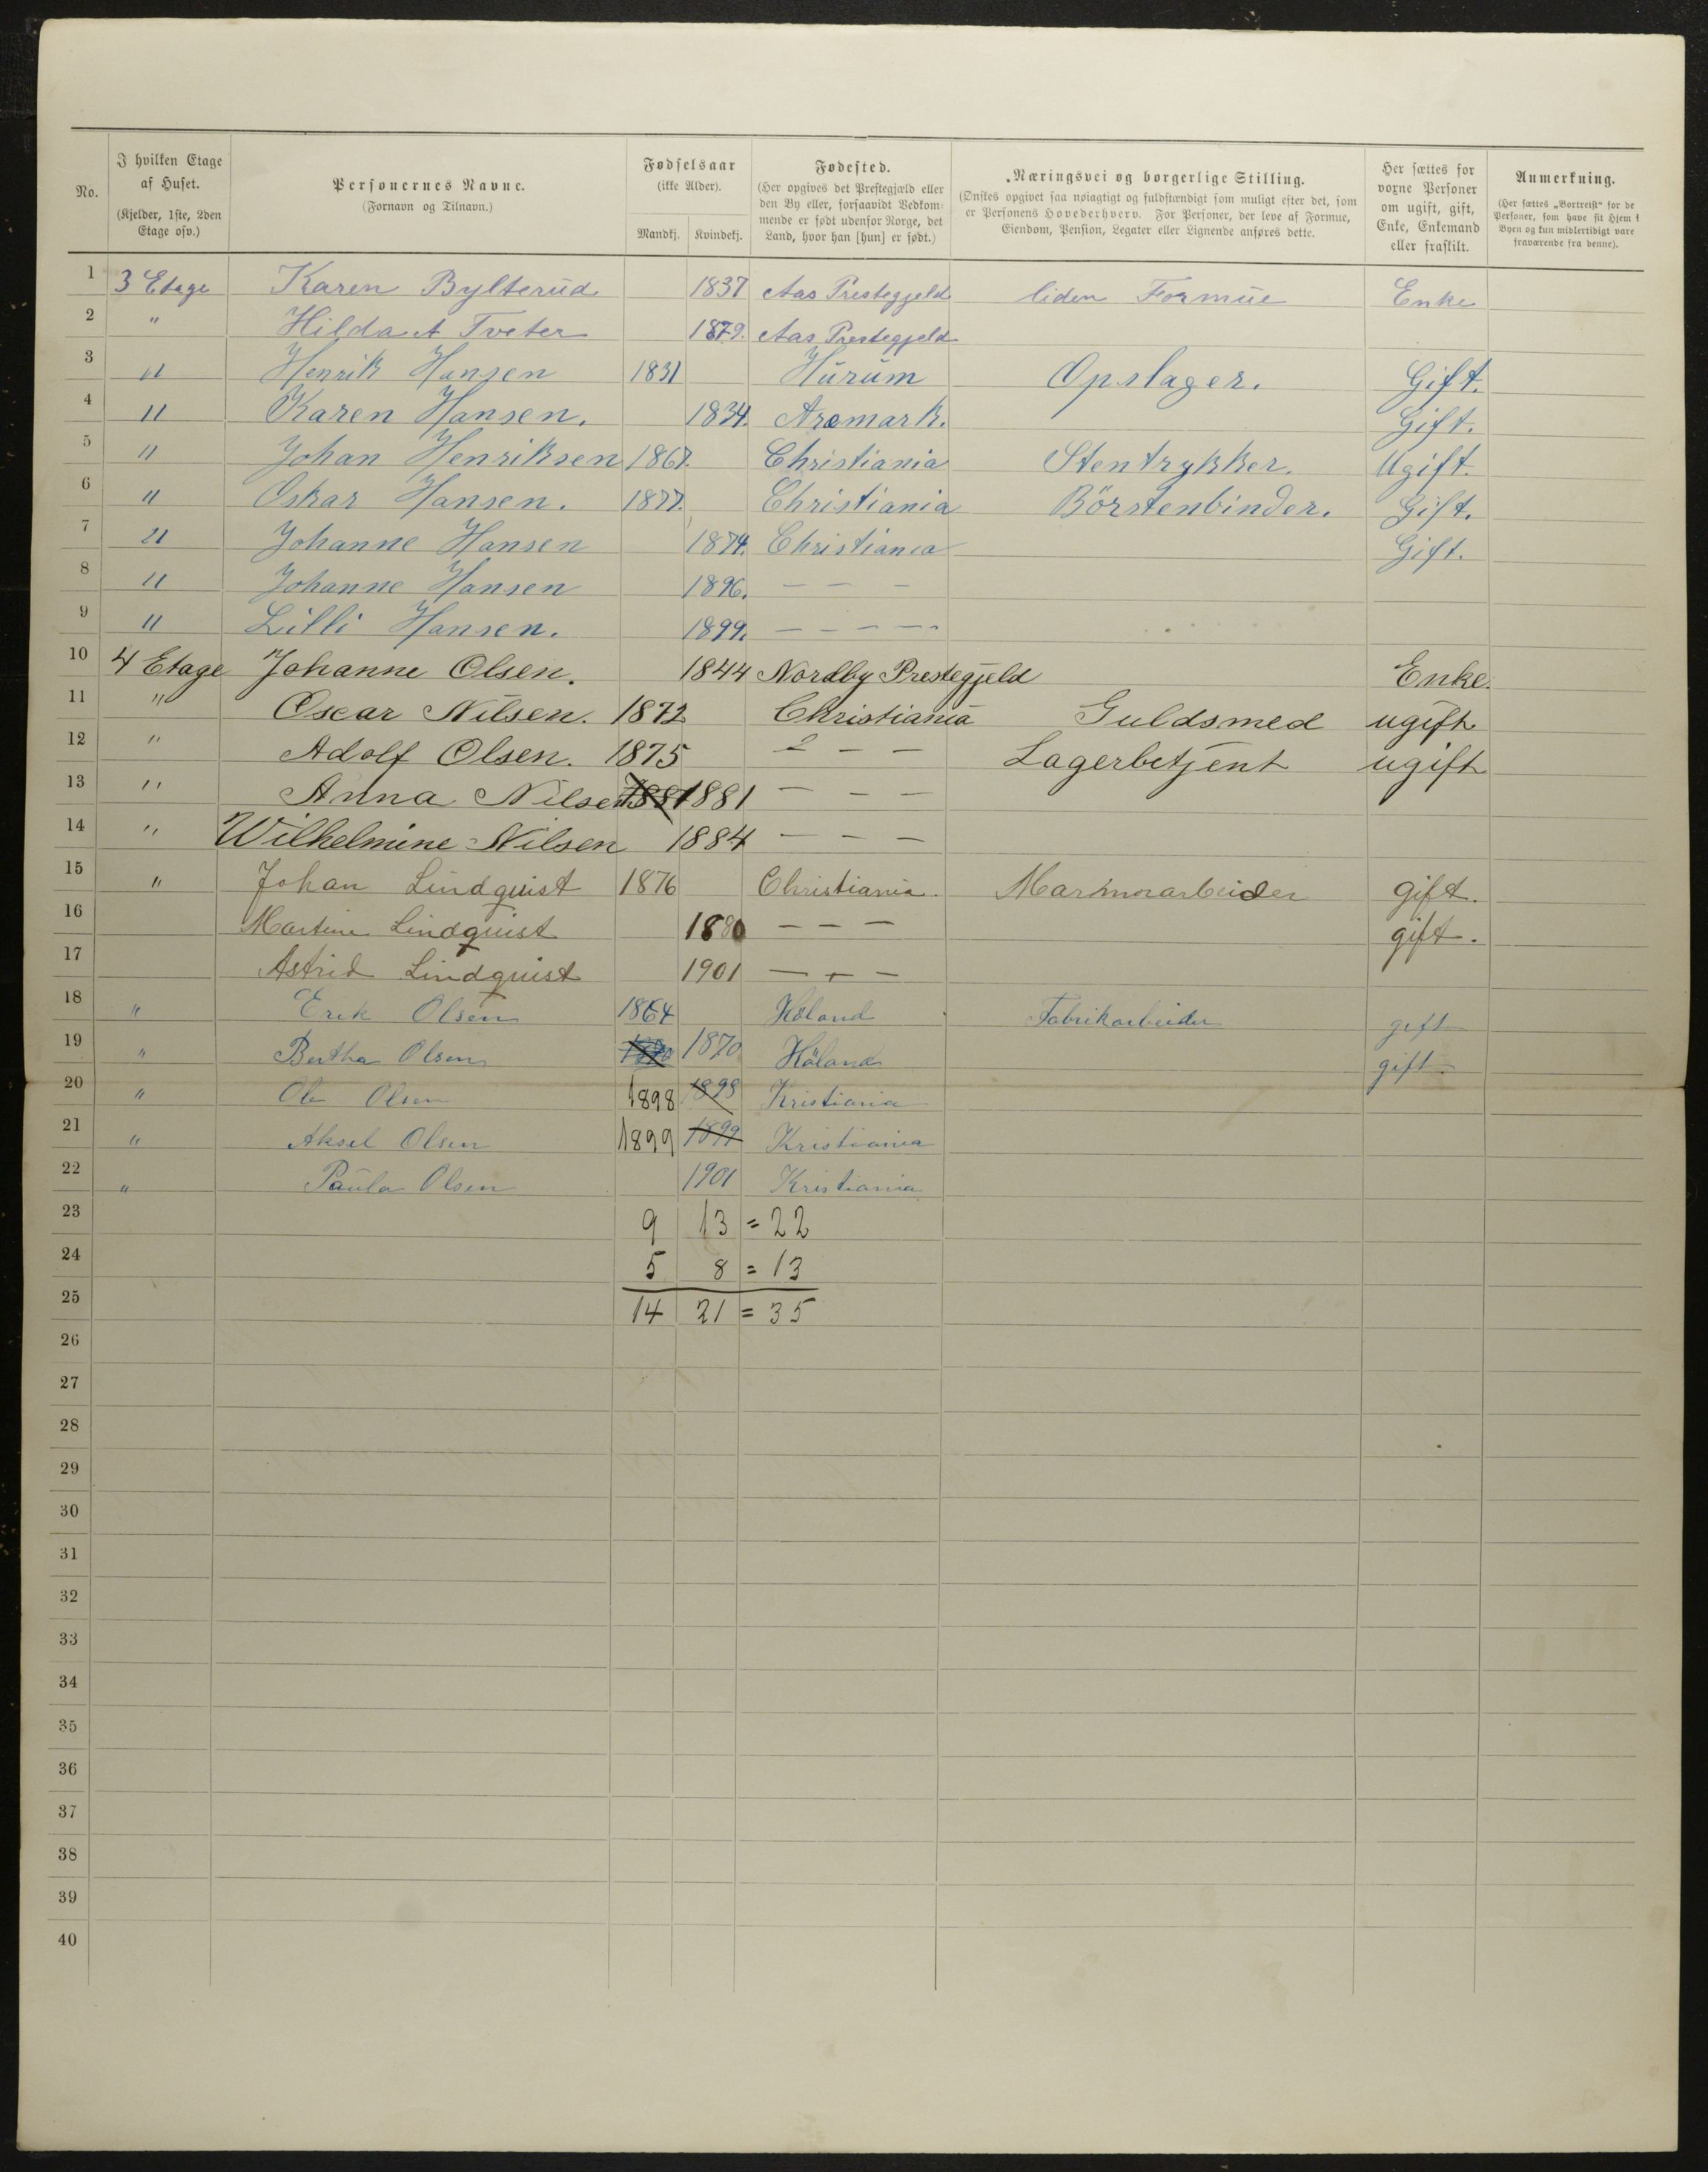 No. I hvilken Etage af Huset. (Kjelder, 1ste, 2den Etage osv.) Personernes Navne. (Fornavn og Tilnavn.) Fødselsaar (ikke Alder). Mandkj. Kvindekj. Fødested. (Her opgives det Prestegjæld eller den By eller, forsaavidt Vedkommende er født udenfor Norge, det Land, hvor han [hun] er født.) Næringsvei og borgerlige Stilling. (Ønskes opgivet saa nøiagtigt og fuldstændigt som muligt efter det, som er Personens Hovederhverv. For Personer, der leve af Formue, Eiendom, Pension, Legater eller Lignende anføres dette. Her sættes for voxne Personer om ugift, gift, Enke, Enkemand eller fraskilt. Anmerkning. (Her sættes „Bortreist“ for de Personer, som have sit Hjem i Byen og kun midlertidigt vare fraværende fra denne).
1 3 Etage Karen Bylterud 1837 Aas Prestegjeld liden Formue Enke
2 " Hilda A Tveter 1879. Aas Prestegjeld
3 " Henrik Hansen 1831 Hurum Opslager. Gift.
4 " Karen Hansen. 1834. Aremark. Gift.
5 " Johan Henriksen 1867. Christiania Stentrykker. Ugift.
6 " Oskar Hansen. 1877. Christiania Börstenbinder. Gift.
7 " Johanne Hansen 1874. Christiania Gift.
8 " Johanne Hansen 1896. — — —
9 " Lilli Hansen. 1899. — — — —
10 4 Etage Johanne Olsen. 1844 Nordby Prestegjeld Enke.
11 " Oscar Nilsen. 1872 Christiania Guldsmed ugift
12 " Adolf Olsen. 1875 — — — Lagerbetjent ugift
13 " Anna Nilsen 1881 1881 — — —
14 " Wilhelmine Nilsen 1884 — — —
15 " Johan Lindquist 1876 Christiania. Marmorarbeider gift.
16 Martine Lindquist 1880 — — — gift.
17 Astrid Lindquist 1901 — — —
18 " Erik Olsen 1864 Höland Fabrikarbeider gift
19 " Bertha Olsen 1870 1870 Höland gift
20 " Ole Olsen 1898 1898 Kristiania
21 " Aksel Olsen 1899 1899 Kristiania
22 " Paula Olsen 1901 Kristiania
23 9 13 = 22
24 5 8 = 13
25 14 21 = 35
26
27
28
29
30
31
32
33
34
35
36
37
38
39
40